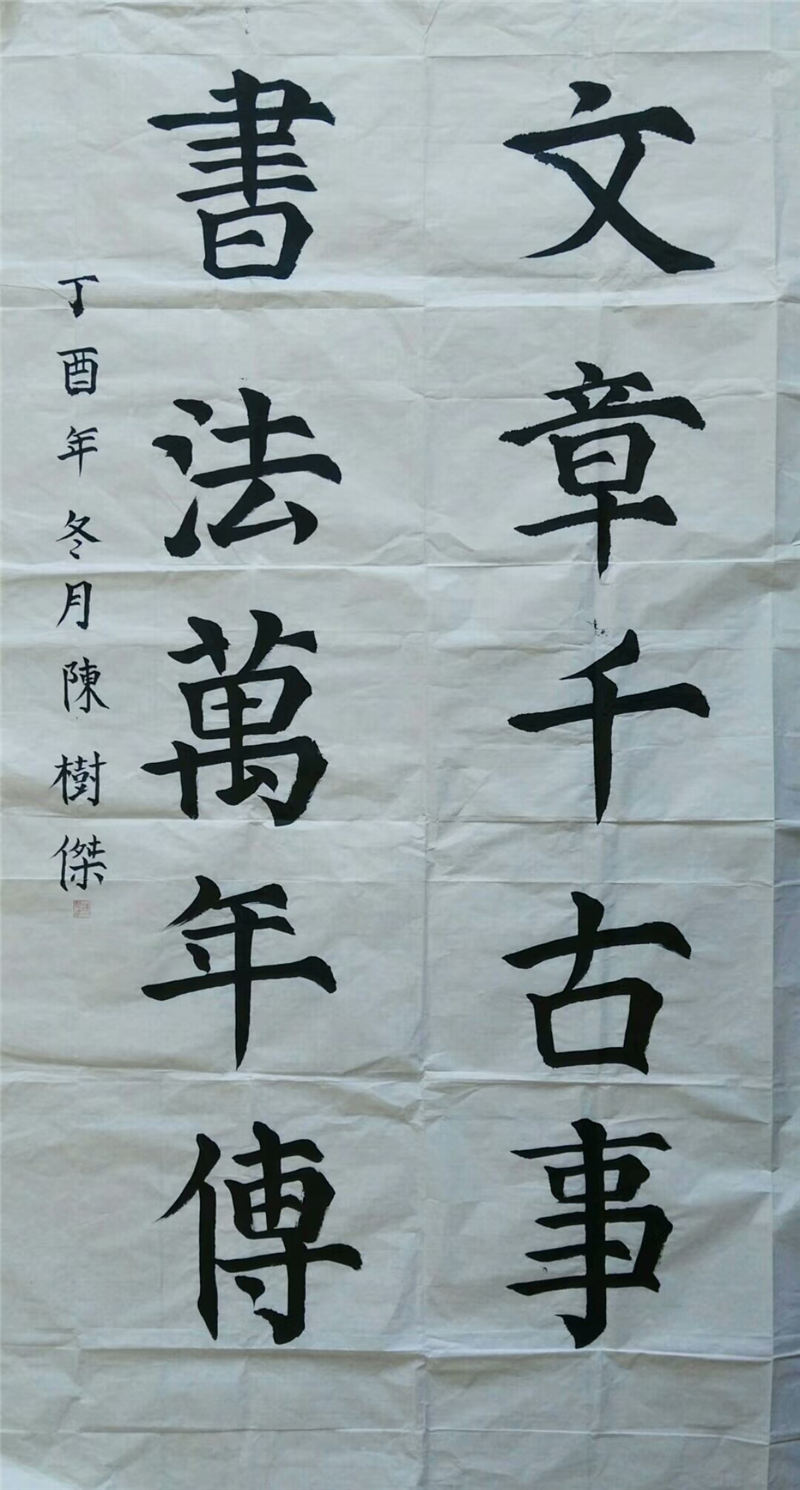 文章千古事
書法萬年傳
丁酉年冬月陳樹傑